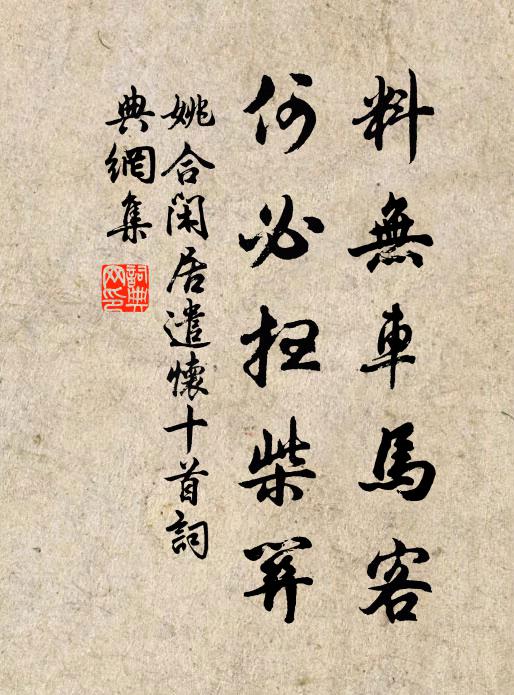 料無車馬客
何必扫柴関
姚合閑居遣懷十首詞
典網集
詞典網印